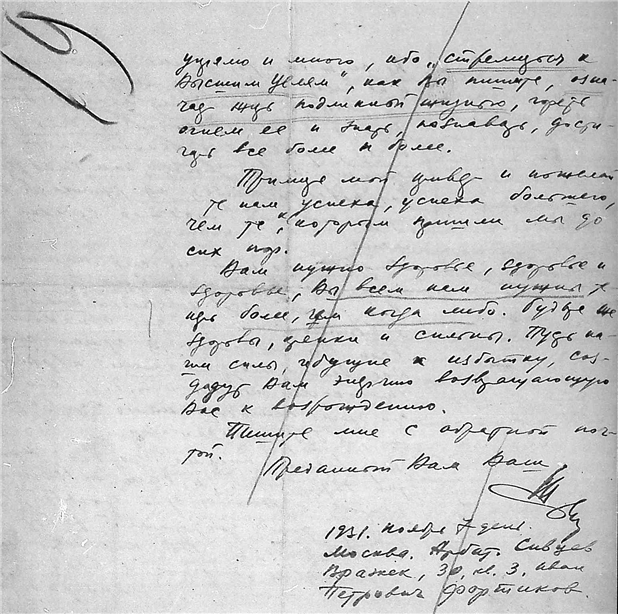 19
упрямо и много, ибо „стремиться к
высшим целям“, как Вы пишите, озна-
чает жить подлинной жизнью, гореть
огнем ее и знать, познавать, дости-
гать все более и более.
Примите мой привет и пожелай
те нам успеха, успеха большего,
чем те, к которым пришли мы до
сих пор.
Вам нужно здоровье, здоровье и
здоровье, Вы всем нам нужны те
перь более, чем когда либо. Будьте же
здоровы, крепки и сильны. Пусть на-
ши силы, идущие к избытку, соз-
дадут Вам энергию возвращающую
Вас к возрождению.
Пишите мне с обратной поч-
той.
Преданный Вам Ваш
1931. ноября 7 дня.
Москва. Арбат. Сивцев
Вражек, 30, кв. 3, Иван
Петрович Фортиков.